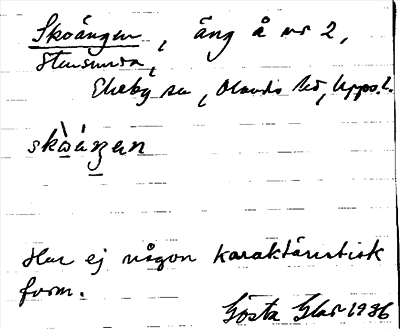 Skoängen, äng å nr 2,
Stensunda,
Ekeby sn, Olands hd, Upps. l.
skòáŋen
Har ej någon karaktäristisk
form.
Gösta Glas 1936